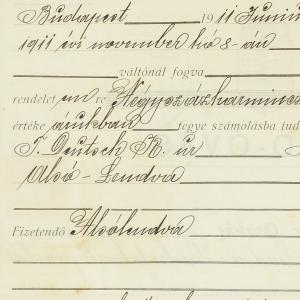 Budapest 1911 Juniu
1911 évi november hó 8-án
váltónál fogva
rendelet em re Négyszázharmincz
értéke árukban tegye számolásba tud
T. Deutsch R. úr
Alsó-Lendva
Fizetendő Alsólendva